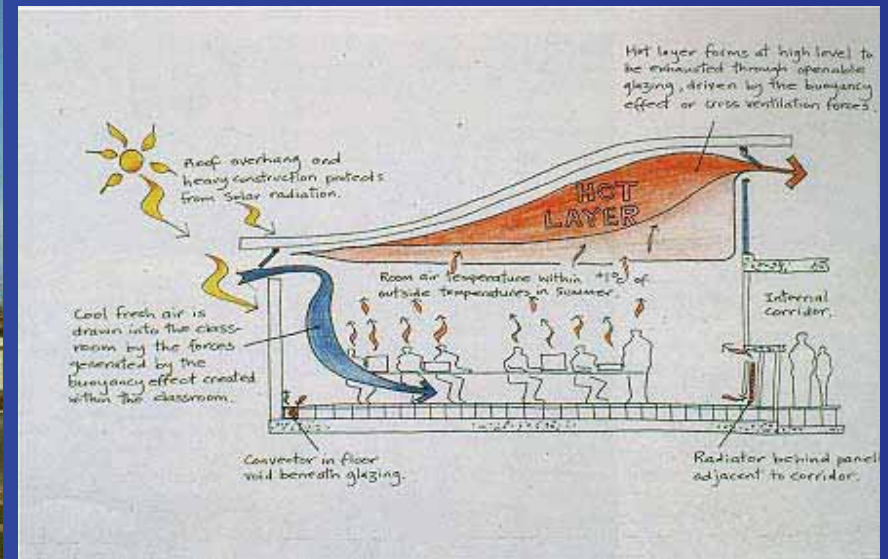 Hot layer forms at high level to
be exhausted through openable
glazing, driven by the buoyancy
effect or cross ventilation forces.
Roof overhang and
heavy construction protects
from solar radiation.
HOT
LAYER
Room air temperature within +1°C of
outside temperatures in Summer.
Internal
corridor.
Cool fresh air is
drawn into the class-
room by the forces
generated by the
buoyancy effect created
within the classroom.
Convector in floor
void beneath glazing.
Radiator behind panel
adjacent to corridor.